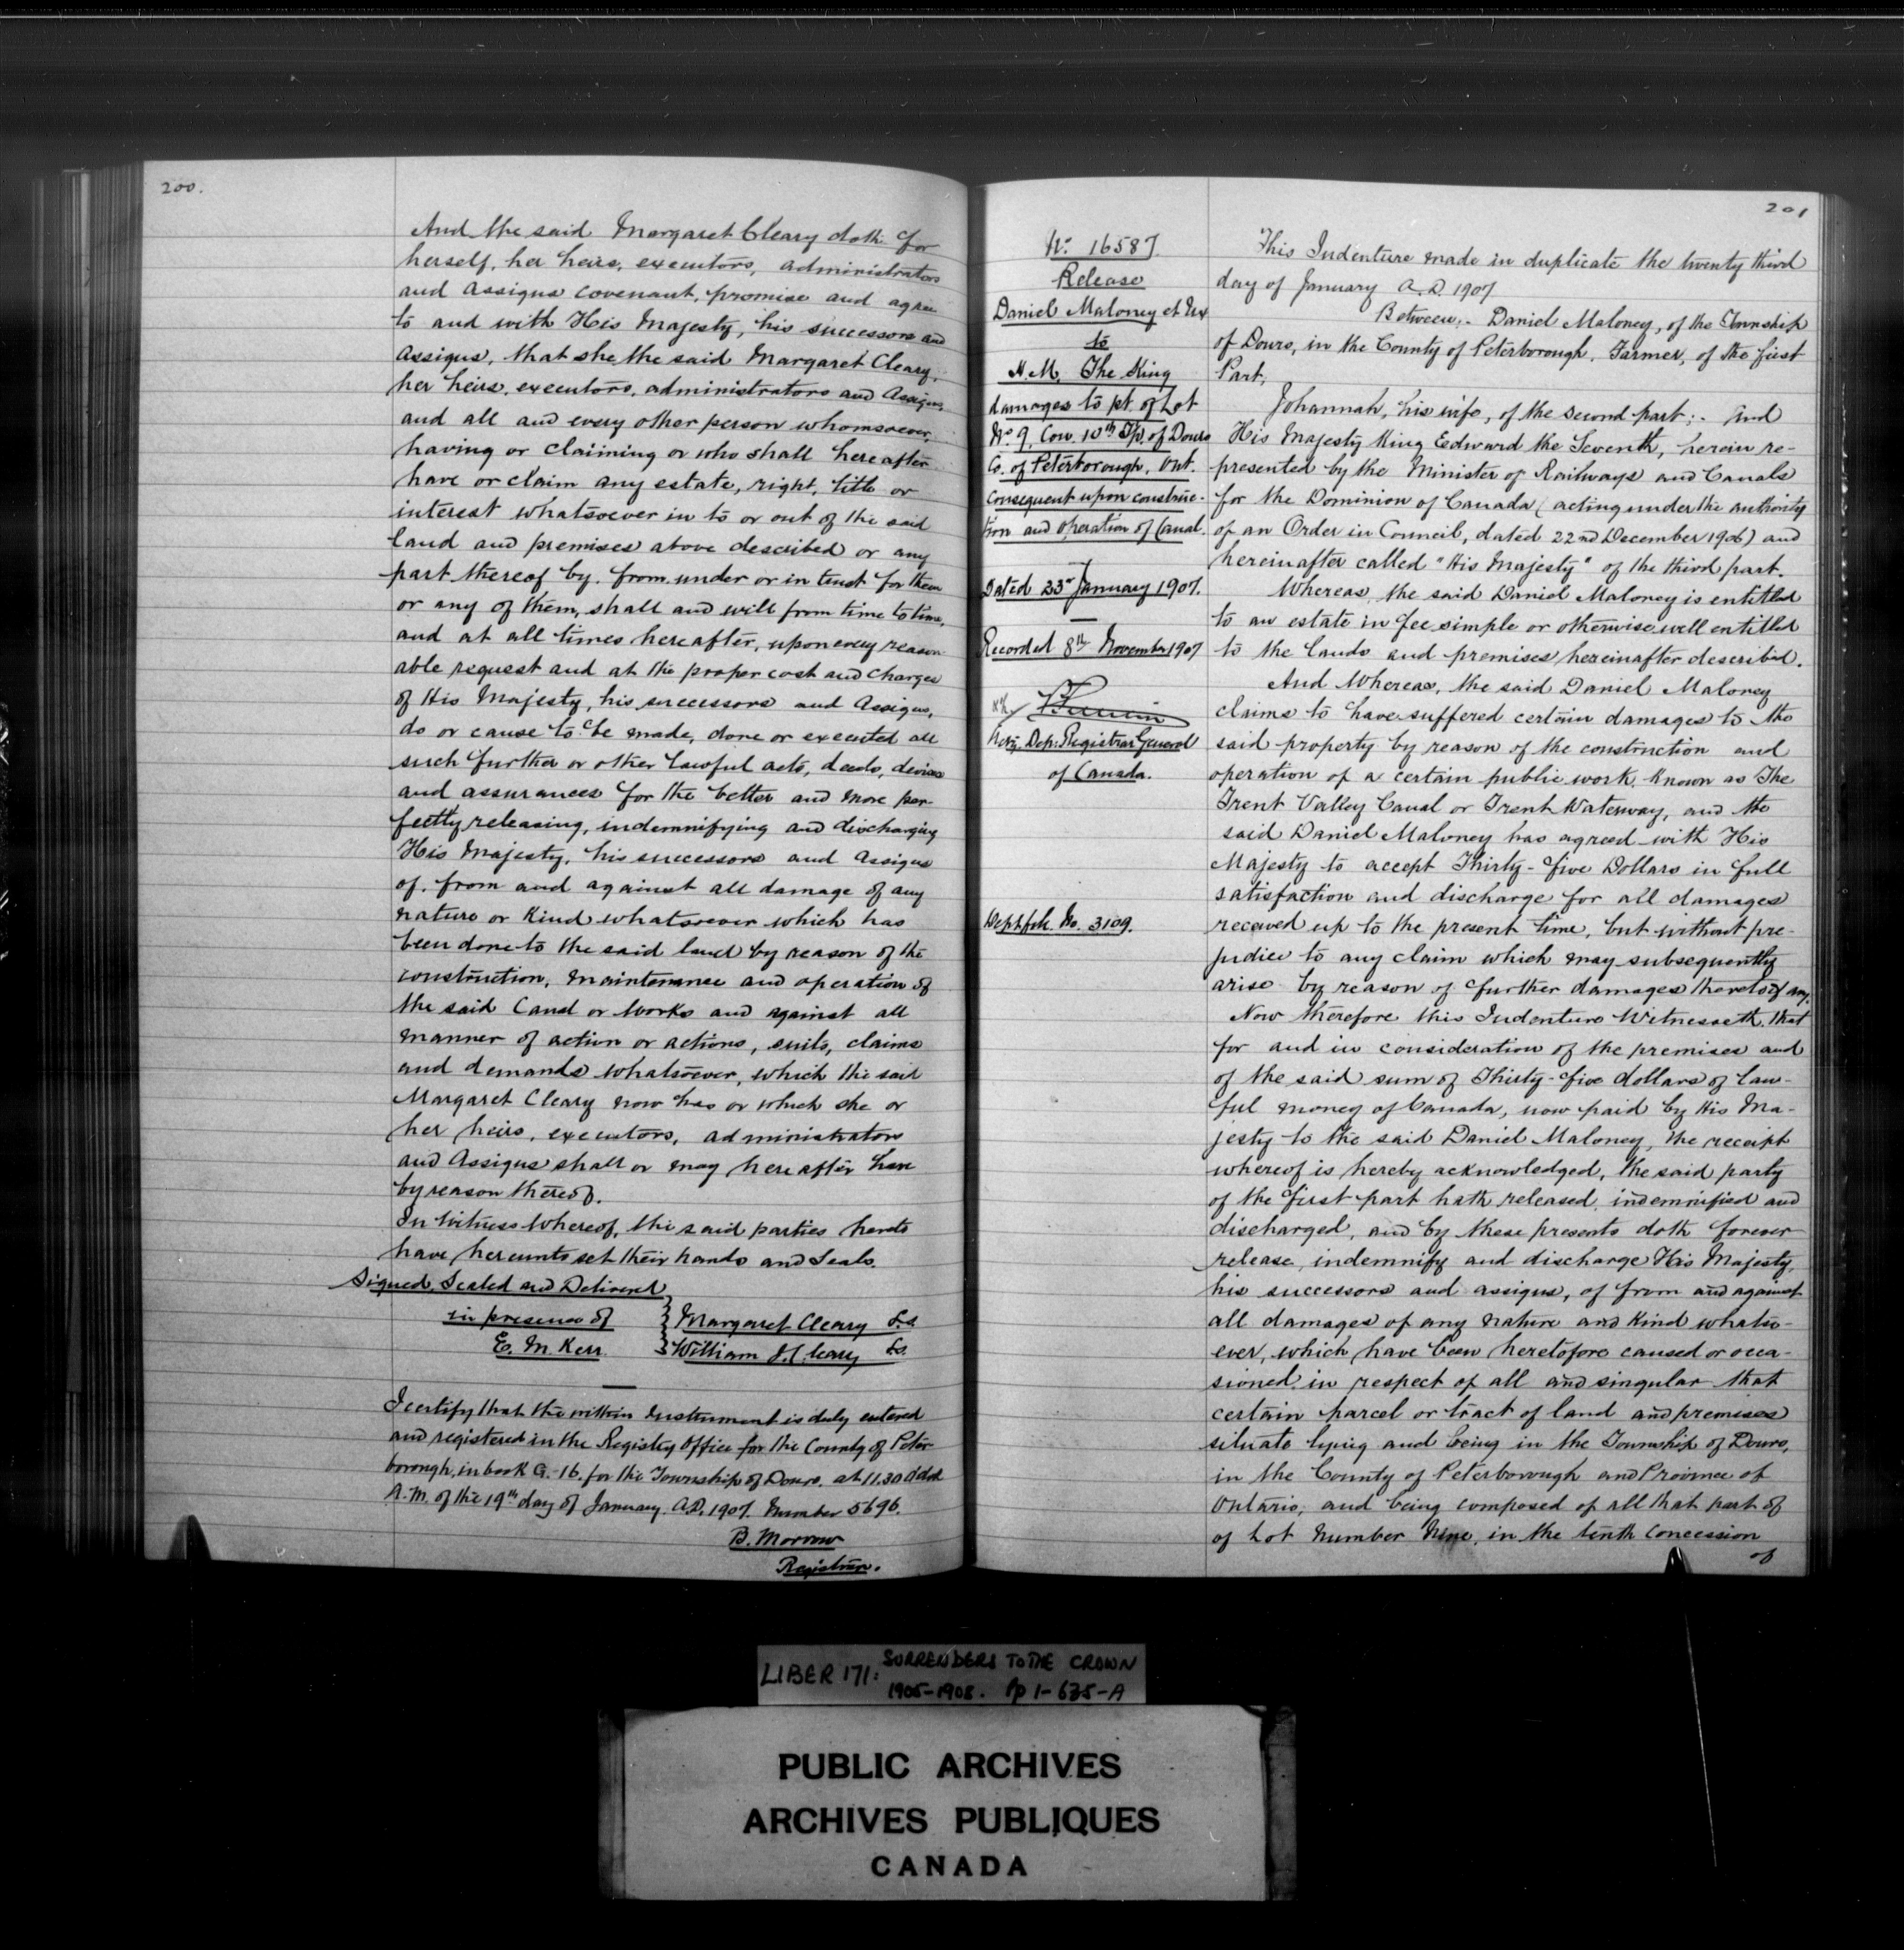 200.
And the said Margaret Cleary doth for
herself, her heirs, executors, administrators
and assigns covenant, promise and agree
to and with His Majesty, his successors and
assigns, that she the said Margaret Cleary,
her heirs, executors, administrators and assigns,
and all and every other person whomsoever,
having or claiming or who shall hereafter
have or claim any estate, right, title or
interest whatsoever in to or out of the said
land and premises above described or any
part thereof by, from, under or in trust for them
or any of them, shall and will from time to time,
and at all times hereafter, upon every reason-
able request and at the proper cost and charges
of His Majesty, his successors and assigns,
do or cause to be made, done or executed all
such further or other lawful acts, deeds, devices
and assurances for the better and more per-
fectly releasing, indemnifying and discharging
His Majesty, his successors and assigns
of, from and against all damage of any
nature or kind whatsoever which has
been done to the said land by reason of the
construction, maintenance and operation of
the said Canal or works and against all
manner of action or actions, suits, claims
and demands whatsoever, which the said
Margaret Cleary now has or which she or
her heirs, executors, administrators
and assigns shall or may hereafter have
by reason thereof.
In Witness Whereof, the said parties hereto
have hereunto set their hands and seals.
Signed, Sealed and Delivered
in presence of } Margaret Cleary L.s
E. M. Kerr } William J. Cleary Ls.
I certify that the within Instrument is duly entered
and registered in the Registry Office for the County of Peter
borough, in book G.-16. for the Township of Douro. at 11.30 O'clock
A.M. of the 19th day of January. A.D. 1907. Number 5696.
B. Morrow
Registrar.
201
No. 16587.
Release
Daniel Maloney et Ux
to
H.M. The King
damages to pt. of Lot
No. 9, Con. 10th Tp. of Douro
Co. of Peterborough, Ont.
consequent upon construc-
tion and operation of Canal.
Dated 23rd January 1907.
Recorded 8th November 1907
Actg. Dep: Registrar General
of Canada.
Dept. file. No. 3109.
This Indenture made in duplicate the twenty third
day of January A.D. 1907
Between:- Daniel Maloney, of the Township
of Douro, in the County of Peterborough, Farmer, of the first
Part,
Johannah, his wife, of the second part:- and
His Majesty King Edward the Seventh, herein re-
presented by the Minister of Railways and Canals
for the Dominion of Canada (acting under the authority
of an Order in Council, dated 22nd December 1906) and
hereinafter called "His Majesty" of the third part.
Whereas, the said Daniel Maloney is entitled
to an estate in fee simple or otherwise well entitled
to the lands and premises hereinafter described.
And Whereas, the said Daniel Maloney
claims to have suffered certain damages to the
said property by reason of the construction and
operation of a certain public work, known as The
Trent Valley Canal or Trent Waterway, and the
said Daniel Maloney has agreed with His
Majesty to accept Thirty-five Dollars in full
satisfaction and discharge for all damages
received up to the present time, but without pre-
judice to any claim which may subsequently
arise by reason of further damages thereto if any.
Now therefore this Indenture Witnesseth, that
for and in consideration of the premises and
of the said sum of Thirty-five dollars of law-
ful money of Canada, now paid by His Ma-
jesty to the said Daniel Maloney, the receipt
whereof is hereby acknowledged, the said party
of the first part hath released, indemnified and
discharged, and by these presents doth forever
release, indemnify and discharge His Majesty,
his successors and assigns, of from and against
all damages of any nature and kind whatso-
ever, which have been heretofore caused or occa-
sioned in respect of all and singular that
certain parcel or tract of land and premises
situate lying and being in the Township of Douro,
in the County of Peterborough and Province of
Ontario, and being composed of all that part of
of Lot Number Nine, in the tenth Concession
of
LIBER 171: SURRENDERS TO THE CROWN
1905-1908. Pp 1-635-A
PUBLIC ARCHIVES
ARCHIVES PUBLIQUES
CANADA